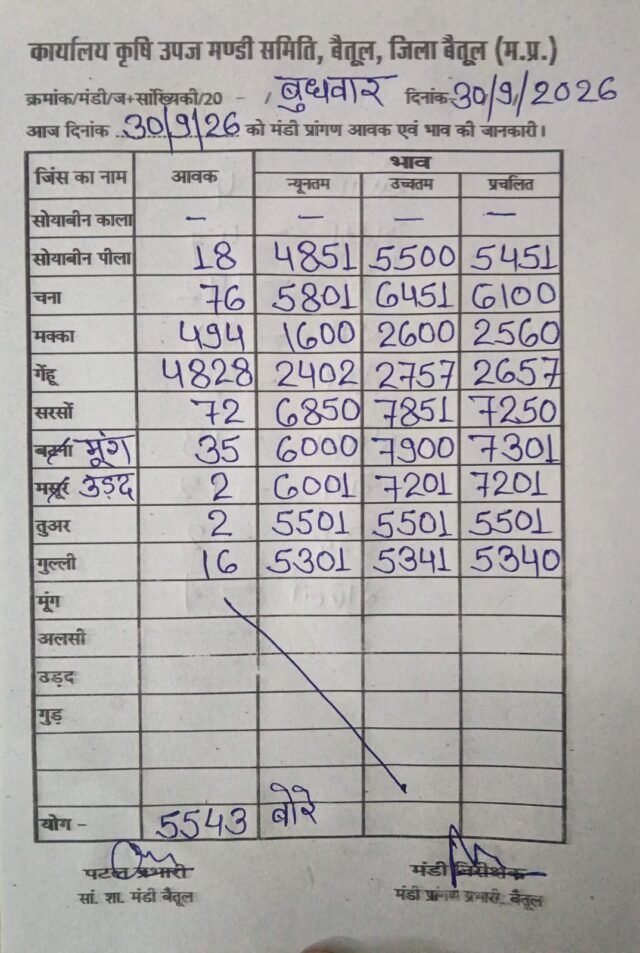 कार्यालय कृषि उपज मण्डी समिति, बैतूल, जिला बैतूल (म.प्र.)
क्रमांक/मंडी/ज+सांख्यिकी/20 - / बुधवार दिनांक 30/9/2026
आज दिनांक 30/9/26 को मंडी प्रांगण आवक एवं भाव की जानकारी।
जिंस का नाम आवक भाव
न्यूनतम उच्चतम प्रचलित
सोयाबीन काला — — — —
सोयाबीन पीला 18 4851 5500 5451
चना 76 5801 6451 6100
मक्का 494 1600 2600 2560
गेंहू 4828 2402 2757 2657
सरसों 72 6850 7851 7250
बटमा मूंग 35 6000 7900 7301
मसूर उड़द 2 6001 7201 7201
तुअर 2 5501 5501 5501
गुल्ली 16 5301 5341 5340
मूंग
अलसी
उड़द
गुड़
योग - 5543 बोरे
पटल प्रभारी मंडी निरीक्षक
सां. शा. मंडी बैतूल मंडी प्रांगण प्रभारी, बैतूल